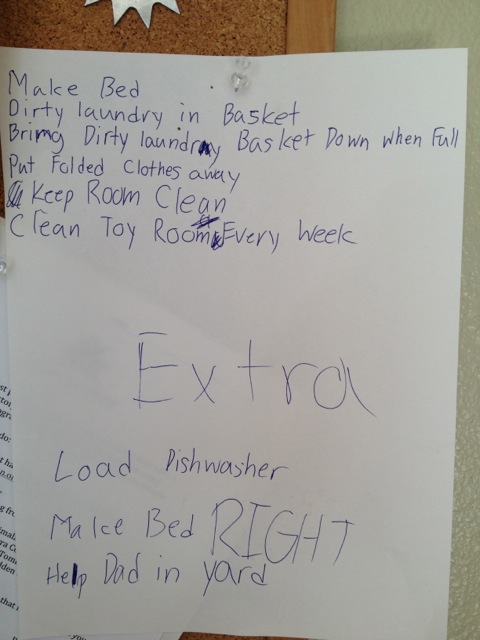 Make Bed
Dirty laundry in Basket
Bring Dirty laundry Basket Down when Full
Put Folded Clothes away
Keep Room Clean
Clean Toy Room Every Week
Extra
Load Dishwasher
Make Bed RIGHT
Help Dad in yard